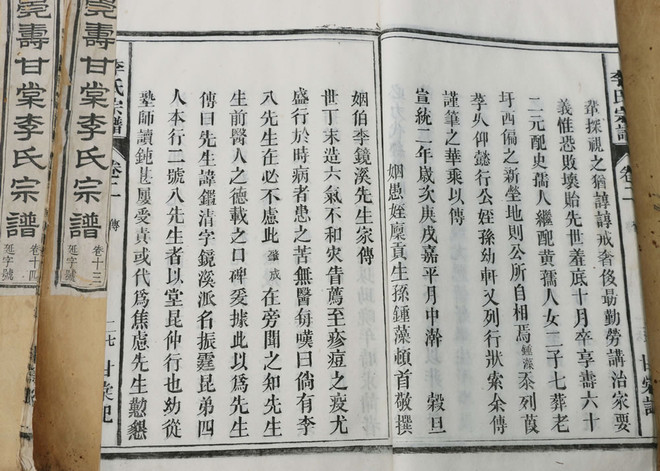 李氏宗譜
輩探視之猶諄諄戒奢後勗勤勞講治家要
義惟恐敗壞貽先世羞底十月卒享壽六十
二元配史孺人繼配黃孺人女二子七葬老
圩西偏之新塋地則公所自相焉鍾藻忝列葭
莩久仰懿行公姪孫幼軒又列行狀索余傳
謹筆之華乘以傳
宣統二年歲次庚戌嘉平月中澣 穀旦
姻愚姪廩貢生孫鍾藻頓首敬撰
姻伯李鏡溪先生家傳
世丁末造六氣不和灾眚薦至疹痘之疫尤
盛行於時病者患之苦無醫每嘆曰倘有李
八先生在必不慮此成在旁聞之知先生
生前醫人之德載之口碑爰據此以爲先生
傳曰先生諱清字鏡溪派名振霆昆弟四
人本行二號八先生者以堂昆仲行也幼從
塾師讀鈍甚屢受責或代爲焦慮先生懃懇
李氏宗譜 卷十二 傳 二七 甘棠記
壽甘棠李氏宗譜 卷十三 延字號
壽甘棠李氏宗譜 卷十四 延字號